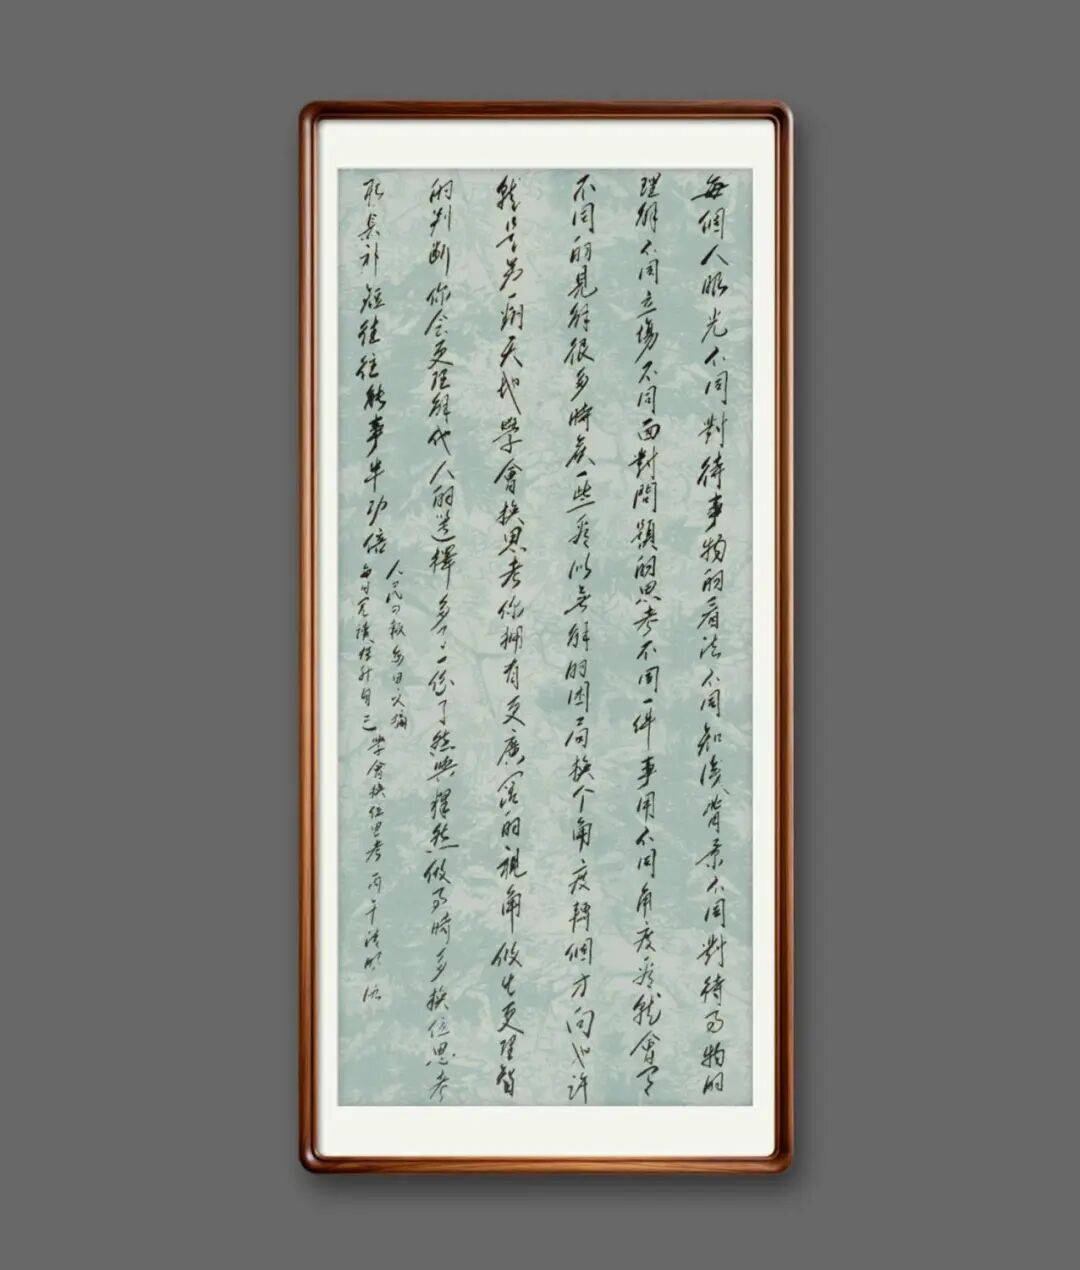 每個人眼光不同對待事物的看法不同知識背景不同對待事物的
理解不同立場不同面對問題的思考不同一件事用不同角度看就會有
不同的見解很多時候一些看似無解的困局換个角度轉個方向也许
就是另一翻天地學會換思考你拥有更廣阔的視角做出更理智
的判断你会更理解他人的選擇多一份了然與釋然做事時多換位思考
取長补短往往能事半功倍
人民日报每日文摘
每日夜讀提升自己學會換位思考丙午清明